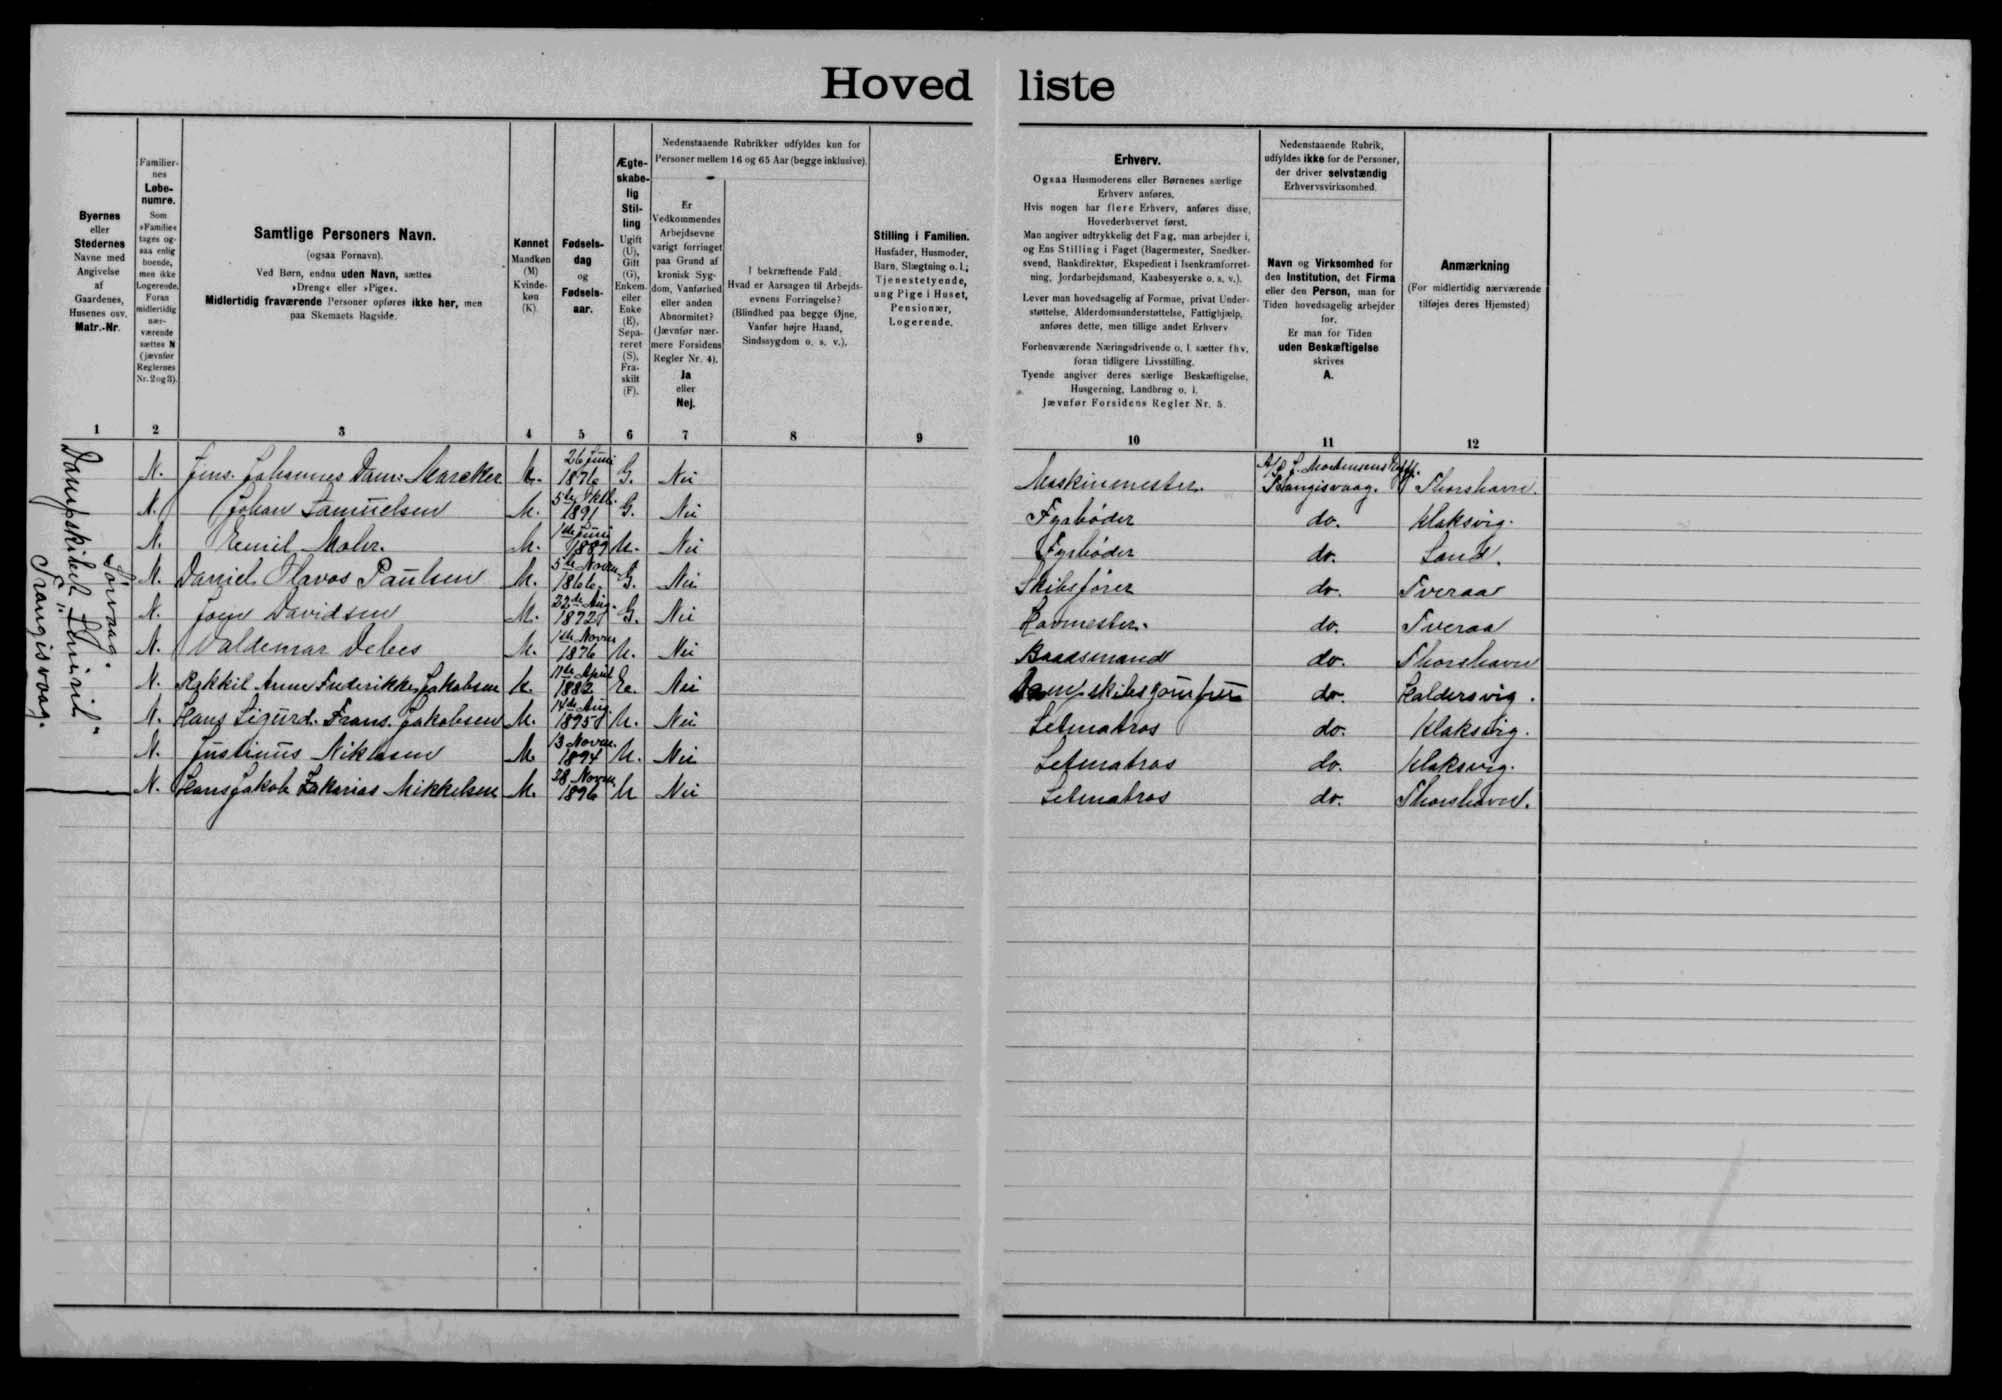 Hovedliste
Byernes
eller
Stedernes
Navne med
Angivelse
af
Gaardenes,
Husenes osv.
Matr.-Nr.
Familier-
nes
Løbe-
numre.
Som
»Familie«
tages og-
saa enlig
boende,
men ikke
Logerende.
Foran
midlertidig
nær-
værende
sættes N
(jævnfør
Reglernes
Nr. 2 og 3).
Samtlige Personers Navn.
(ogsaa Fornavn).
Ved Børn, endnu uden Navn, sættes
»Dreng« eller »Pige«.
Midlertidig fraværende Personer opføres ikke her, men
paa Skemaets Bagside.
Kønnet
Mandkøn
(M)
Kvinde-
køn
(K)
Fødsels-
dag
og
Fødsels-
aar.
Ægte-
skabe-
lig
Stil-
ling
Ugift
(U),
Gift
(G),
Enkem.
eller
Enke
(E),
Sepa-
reret
(S),
Fra-
skilt
(F).
Nedenstaaende Rubrikker udfyldes kun for
Personer mellem 16 og 65 Aar (begge inklusive).
Er
Vedkommendes
Arbejdsevne
varigt forringet
paa Grund af
kronisk Syg-
dom, Vanførhed
eller anden
Abnormitet?
(Jævnfør nær-
mere Forsidens
Regler Nr. 4).
Ja
eller
Nej.
I bekræftende Fald:
Hvad er Aarsagen til Arbejds-
evnens Forringelse?
(Blindhed paa begge Øjne,
Vanfør højre Haand,
Sindssygdom o. s. v.).
Stilling i Familien.
Husfader, Husmoder,
Barn, Slægtning o. l.;
Tjenestetyende,
ung Pige i Huset,
Pensionær,
Logerende.
Erhverv.
Ogsaa Husmoderens eller Børnenes særlige
Erhverv anføres.
Hvis nogen har flere Erhverv, anføres disse,
Hovederhvervet først.
Man angiver udtrykkelig det Fag, man arbejder i,
og Ens Stilling i Faget (Bagermester, Snedker-
svend, Bankdirektør, Ekspedient i Isenkramforret-
ning, Jordarbejdsmand, Kaabesyerske o. s. v.).
Lever man hovedsagelig af Formue, privat Under-
støttelse, Alderdomsunderstøttelse, Fattighjælp,
anføres dette, men tillige andet Erhverv
Forhenværende Næringsdrivende o. l. sætter fhv.
foran tidligere Livsstilling.
Tyende angiver deres særlige Beskæftigelse,
Husgerning, Landbrug o. l.
Jævnfør Forsidens Regler Nr. 5.
Nedenstaaende Rubrik,
udfyldes ikke for de Personer,
der driver selvstændig
Erhvervsvirksomhed.
Navn og Virksomhed for
den Institution, det Firma
eller den Person, man for
Tiden hovedsagelig arbejder
for.
Er man for Tiden
uden Beskæftigelse
skrives
A.
Anmærkning
(For midlertidig nærværende
tilføjes deres Hjemsted)
1 2 3 4 5 6 7 8 9 10 11 12
Dampskibet "Smiril"
Torvaag.
Trangisvaag.
N. Jens Johannes Dam Marcker K. 26 Juni 1876 G. Nei Maskinmester. A/S J. Mortensens Eftf. Trangisvaag. Thorshavn.
N. Johan Samuelsen M. 5te Oktb. 1891 G. Nei Fyrbøder do. Klaksvig.
N. Emil Mohr. M. 1ste Juni 1889 U. Nei Fyrbøder do. Sand.
N. Daniel Olavos Paulsen M. 5te Novem 1866 G. Nei Skibsfører do. Tveraa
N. Joen Davidsen M. 22de Aug. 1872 G. Nei Hovmester. do. Tveraa
N. Valdemar Debes M. 1ste Novem 1876 U. Nei Baadsmand do. Thorshavn
N. Rakkil Anna Frederikke Jakobsen K. 17de April 1882 E. Nei Dampskibsjomfru do. Haldersvig.
N. Hans Sigurd Frans Jakobsen M. 14de Aug. 1895 U. Nei Letmatros do. Klaksvig.
N. Justinus Niklasen M 13 Novem. 1894 U. Nei Letmatros do. Klaksvig.
N. Hans Jakob Zakarias Mikkelsen M. 28 Novem 1896 U Nei Letmatros do. Thorshavn.